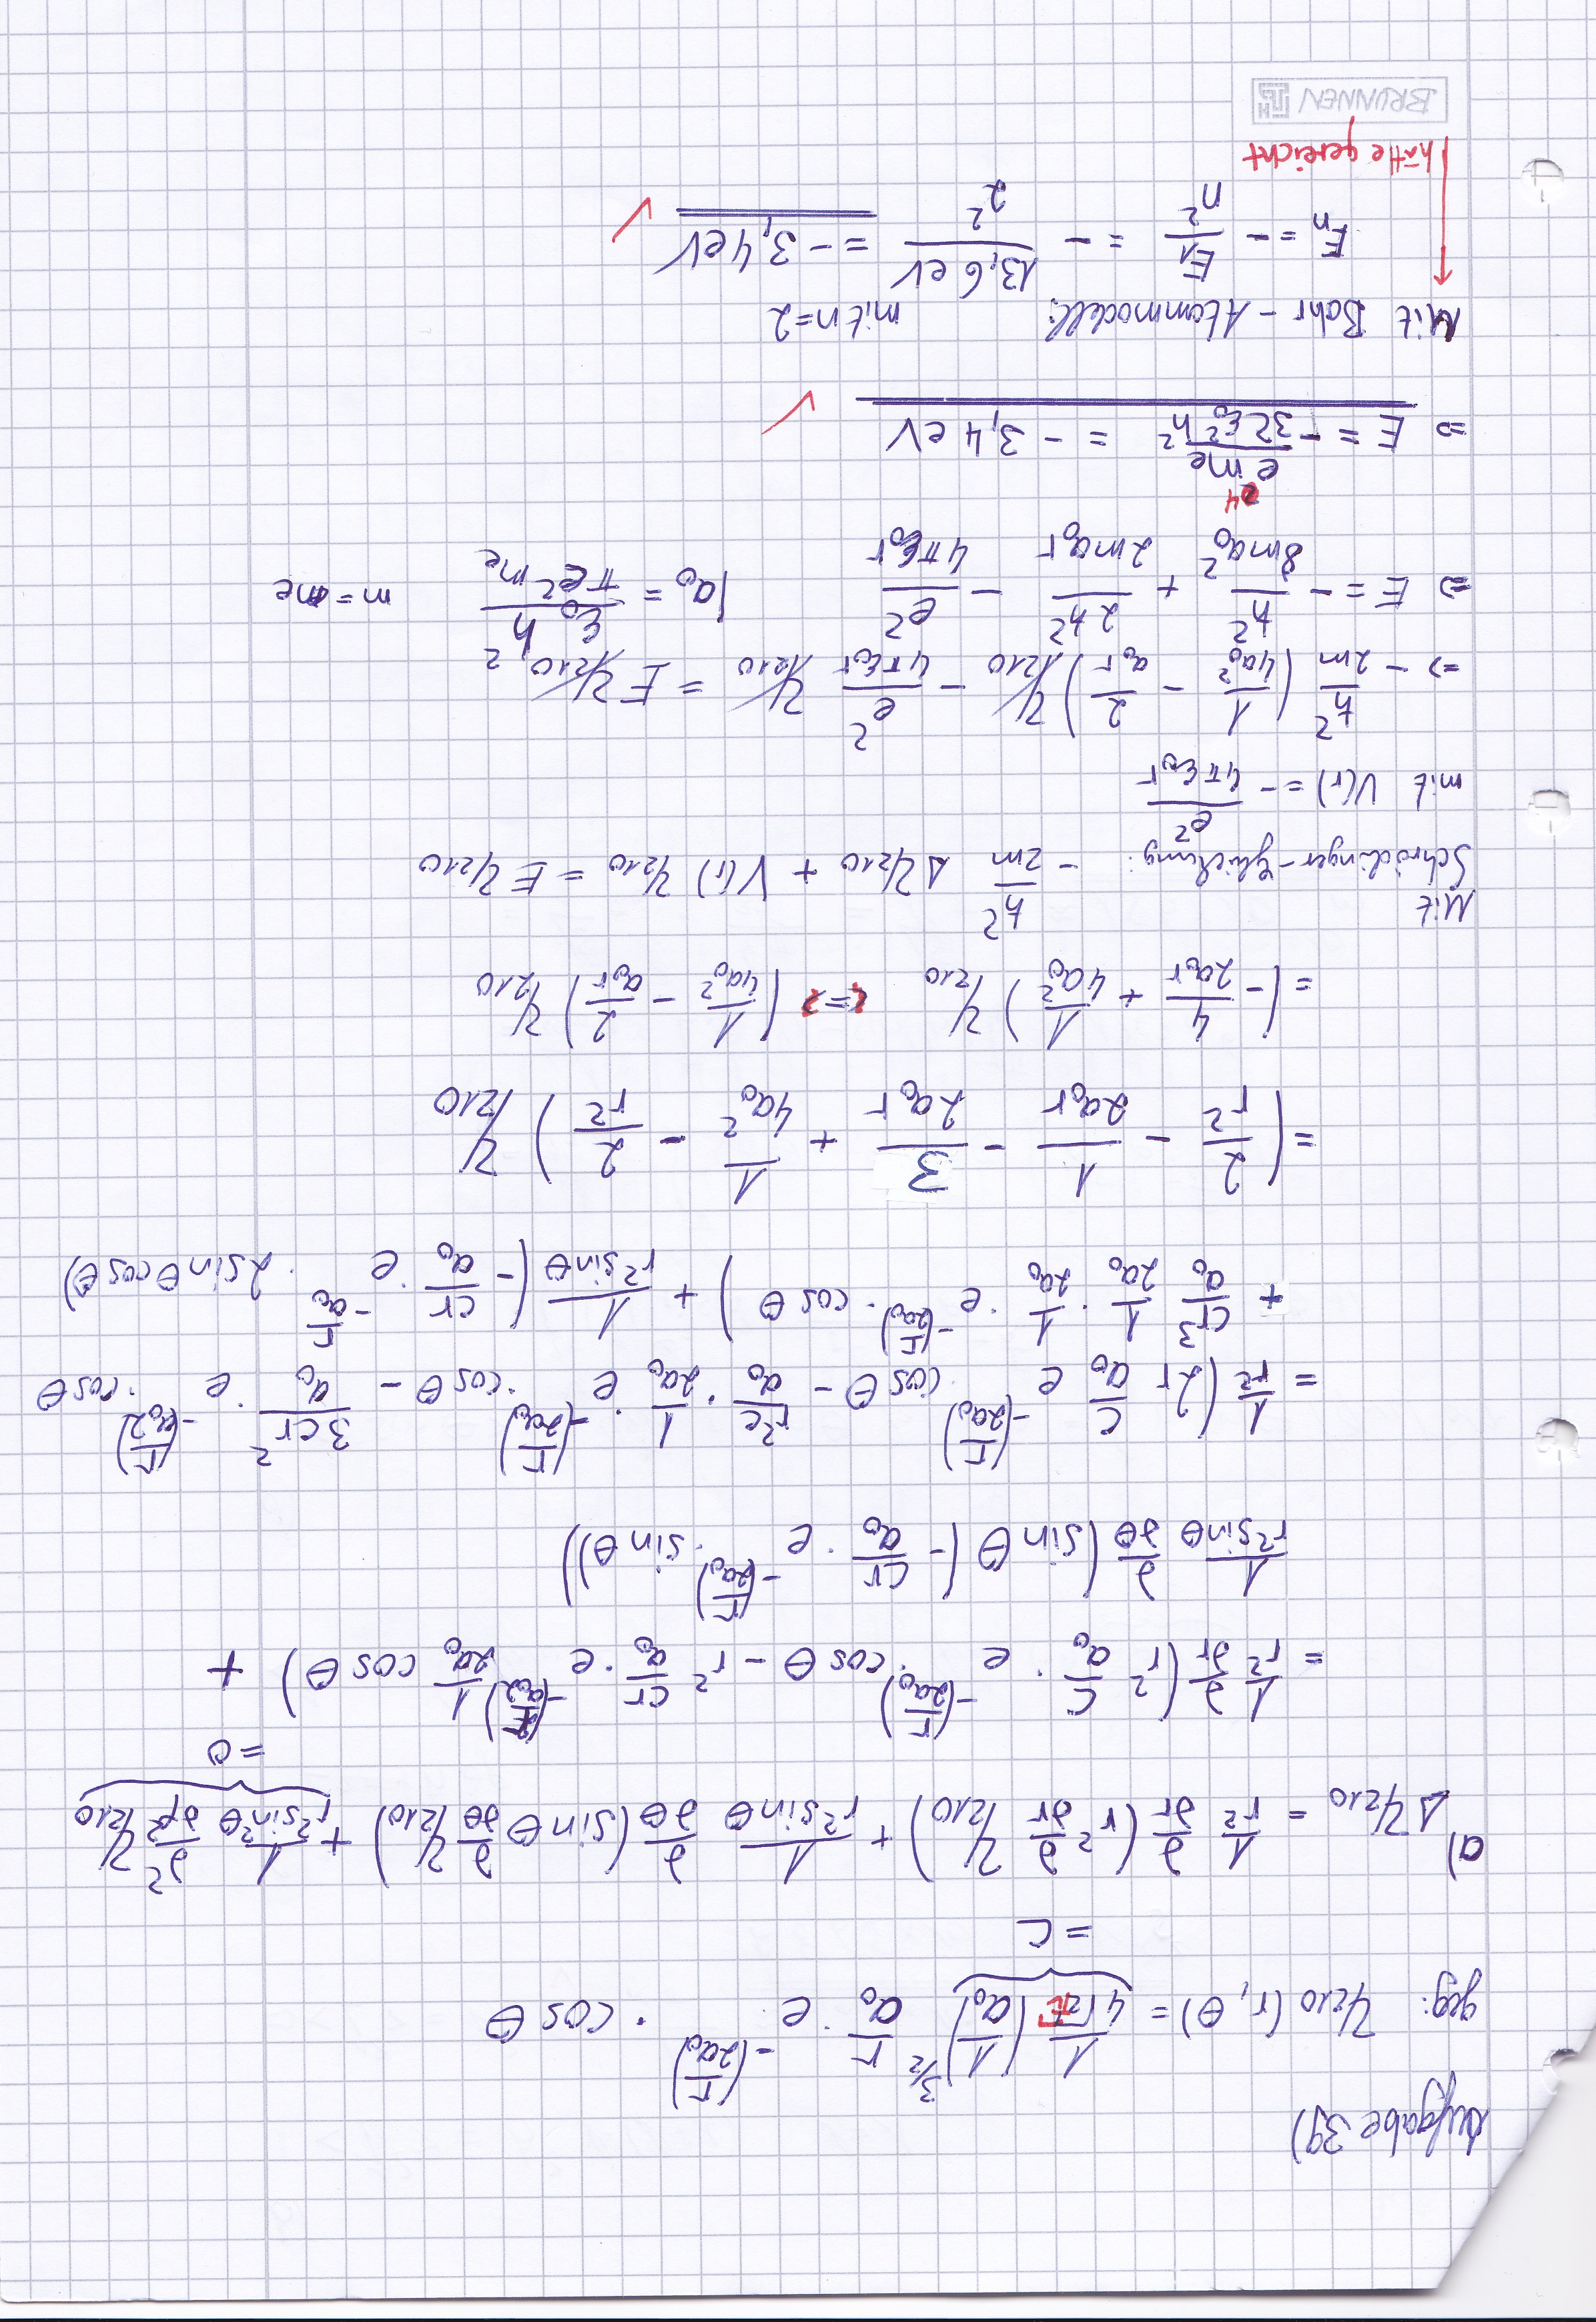 Aufgabe 39)
geg: Ψ₂₁₀ (r, θ) = 1/(4√(2π)) (1/a₀)^(3/2) r/a₀ · e^(-(r/2a₀)) · cos θ
= C
a) Δ Ψ₂₁₀ = 1/r² ∂/∂r (r² ∂/∂r Ψ₂₁₀) + 1/(r² sin θ) ∂/∂θ (sin θ ∂/∂θ Ψ₂₁₀) + 1/(r² sin² θ) ∂²/∂φ² Ψ₂₁₀
= 0
= 1/r² ∂/∂r (r² C/a₀ · e^(-(r/2a₀)) · cos θ - r² Cr/a₀ · e^(-(r/a₀2)) 1/2a₀ cos θ) +
1/(r² sin θ) ∂/∂θ (sin θ (- Cr/a₀ · e^(-(r/2a₀)) · sin θ))
= 1/r² (2r C/a₀ e^(-(r/2a₀)) cos θ - r²C/a₀ · 1/2a₀ · e^(-(r/2a₀)) · cos θ - 3Cr²/a₀ · e^(-(r/a₀2)) · cos θ
+ Cr³/a₀ 1/2a₀ · 1/2a₀ · e^(-(r/2a₀)) · cos θ) + 1/(r² sin θ) (- Cr/a₀ · e^(-r/a₀) · 2 sin θ cos θ)
= (2/r² - 1/2a₀r - 3/2a₀r + 1/4a₀² - 2/r²) Ψ₂₁₀
= (- 4/2a₀r + 1/4a₀²) Ψ₂₁₀ <=> (1/4a₀² - 2/a₀r) Ψ₂₁₀
Mit
Schrödinger-Gleichung: - ħ²/2m Δ Ψ₂₁₀ + V(r) Ψ₂₁₀ = E Ψ₂₁₀
mit V(r) = - e²/4πε₀r
=> - ħ²/2m (1/4a₀² - 2/a₀r) Ψ₂₁₀ - e²/4πε₀r Ψ₂₁₀ = E Ψ₂₁₀
=> E = - ħ²/8ma₀² + 2ħ²/2ma₀r - e²/4πε₀r | a₀ = ε₀ h²/πe²mₑ m = me
=> E = - e⁴mₑ/32ε₀²h² = - 3,4 eV ✓
Mit Bohr-Atommodell: mit n=2
Eₙ = - E₁/n² = - 13,6 eV/2² = - 3,4 eV ✓
hätte gereicht
BRUNNEN